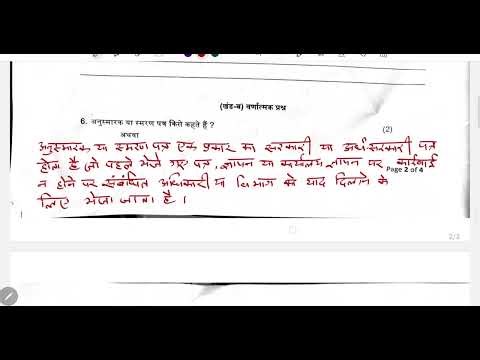 (खंड-ब) वर्णात्मक प्रश्न
6. अनुस्मारक या स्मरण पत्र किसे कहते हैं ?
अथवा
(2)
अनुस्मारक या स्मरण पत्र एक प्रकार का सरकारी या अर्ध-सरकारी पत्र
होता है (जो पहले भेजे गए पत्र, ज्ञापन या कार्यालय ज्ञापन पर कार्रवाई
Page 2 of 4
न होने पर संबंधित अधिकारी या विभाग को याद दिलाने के
लिए भेजा जाता है ।
2/3